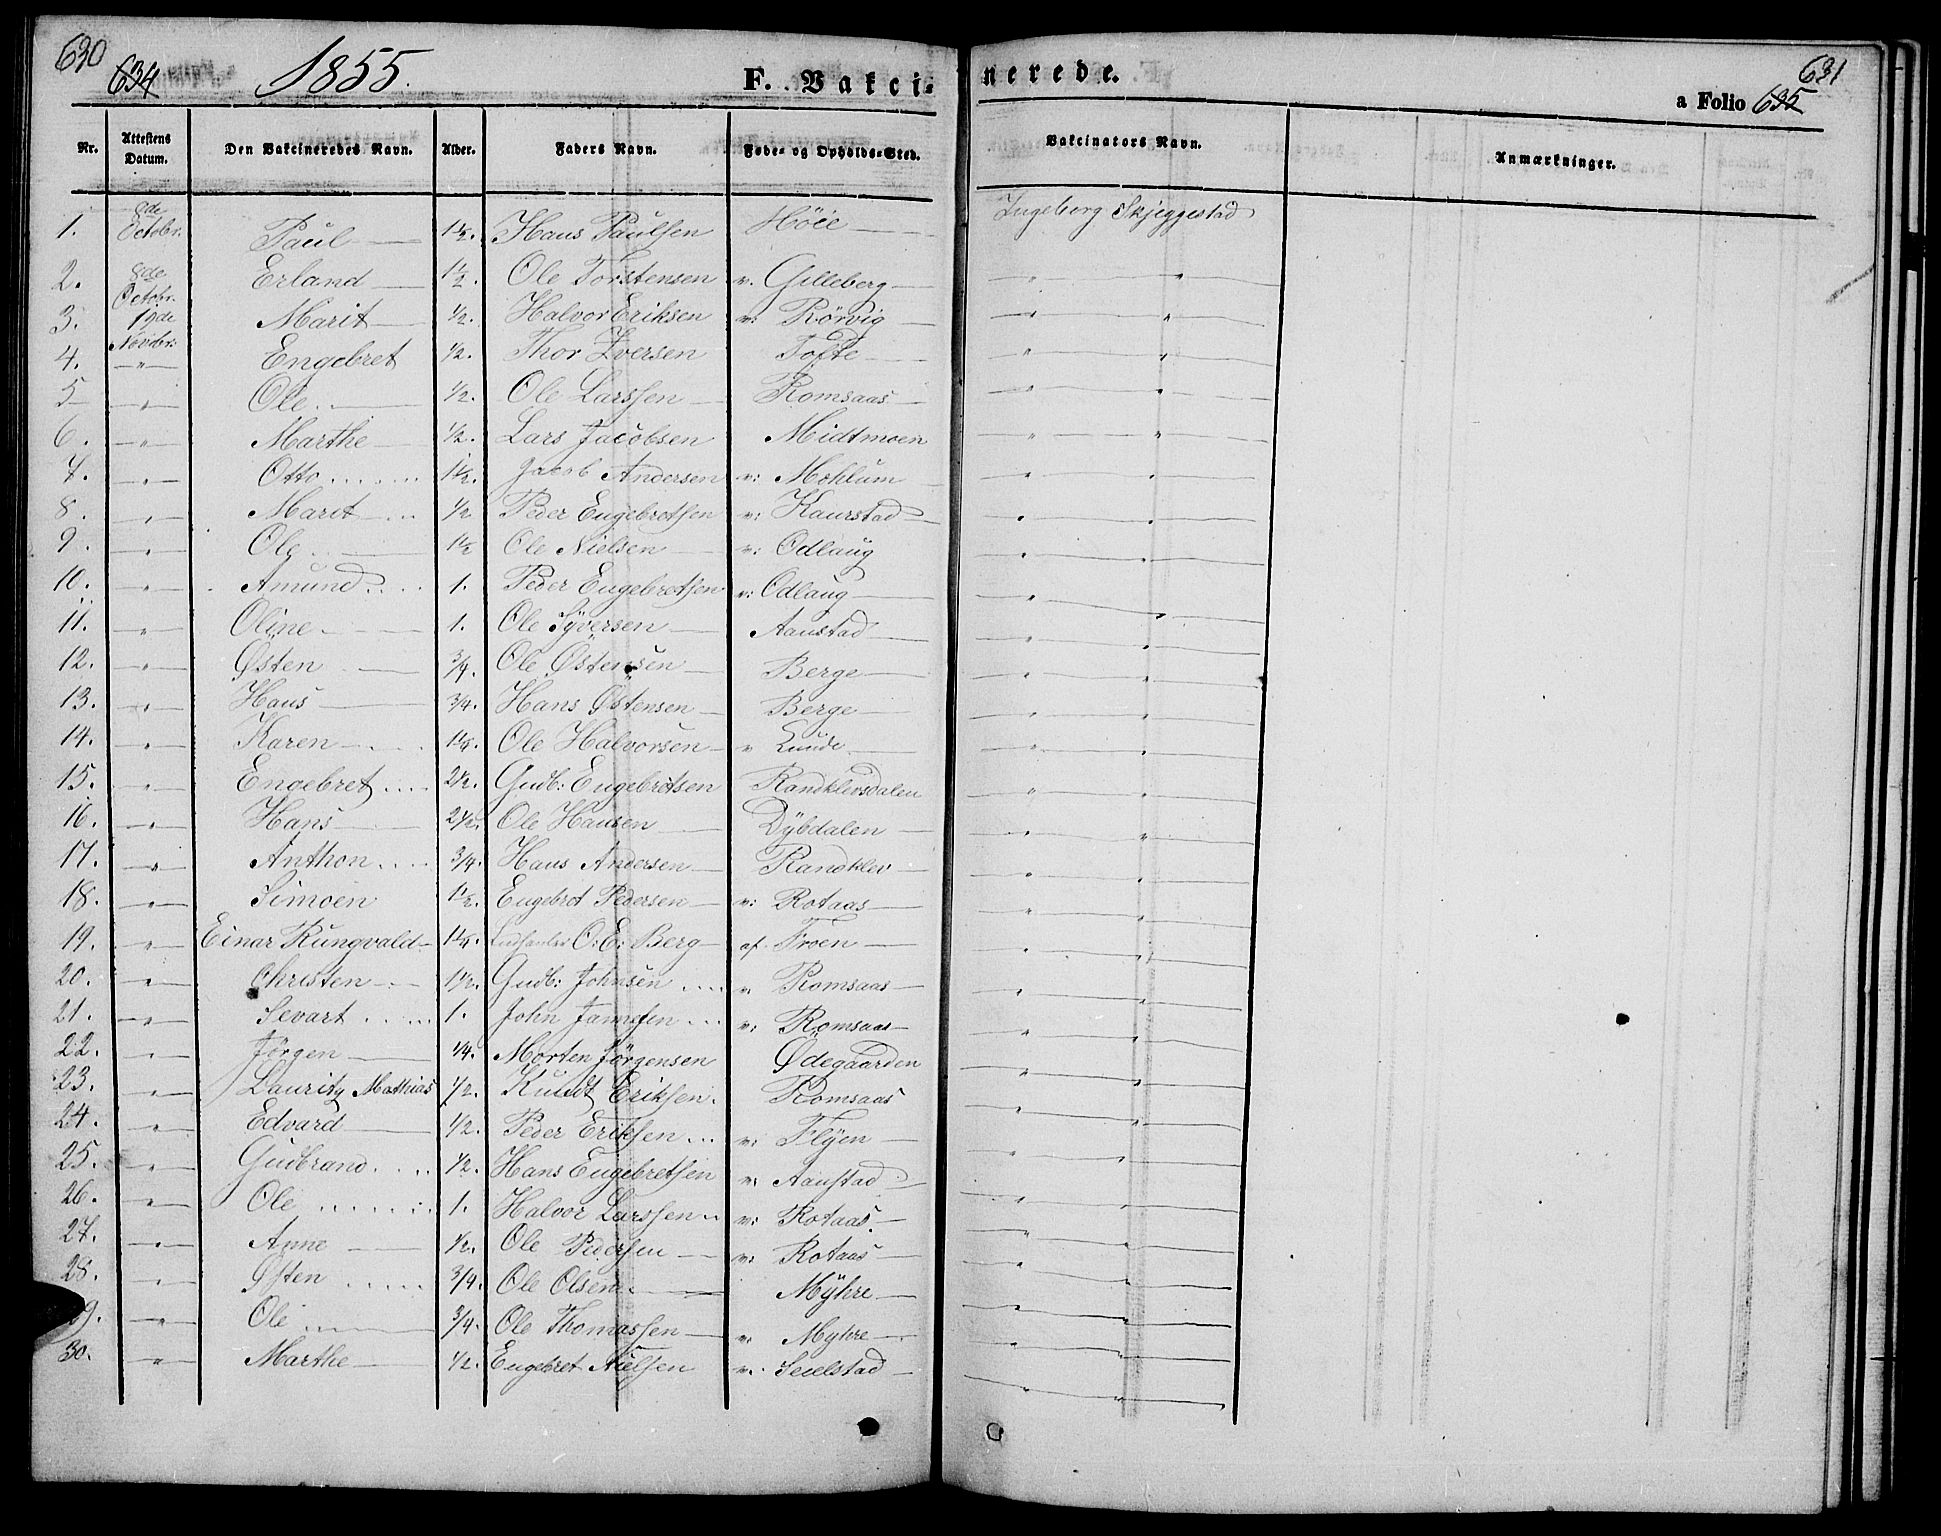 630 634 1855. F. Vakci- nerede. a Folio 635 631
Nr. Attestens Datum. Den Vakcineredes Navn. Alder. Faders Navn. Føde- og Opholds-Sted. Vakcinators Navn. Anmærkninger.
1. 8de Octobr. Paul 1 1/2. Hans Paulsen Höie Ingeborg Skjeggestad
2. 8de Octobr. Erland 1 1/2. Ole Torstensen v. Gilleberg " "
3. 19de Novbr: Marit 1/2. Halvor Eriksen v: Rörvig " "
4. " Engebret 1/2. Thor Iversen Tofte " "
5 " Ole. 1/2. Ole Larssen Romsaas " "
6. " Marthe 1/2. Lars Jacobsen Midtmoen " "
7. " Otto 1 1/2. Jacob Andersen v: Mohlum " "
8. " Marit 1/2 Peder Engebretsen v: Kaurstad " "
9. " Ole 1 1/2 Ole Nielsen v: Odlaug " "
10. " Amund 1. Peder Engebretsen v: Odlaug " "
11. " Oline 1. Ole Syversen Aanstad " "
12. " Østen 3/4. Ole Østensen Berge " "
13. " Hans 3/4. Hans Østensen Berge " "
14. " Karen 1 1/4. Ole Halvorsen v Lunde " "
15. " Engebret 2 1/2. Gudb: Engebretsen Randklevsdalen " "
16. " Hans 2 1/2. Ole Hansen Dybdalen " "
17. " Anthon 3/4. Hans Andersen Randklev " "
18. " Simoen 1 1/2. Engebret Pedersen v: Rotaas " "
19. " Einar Rungvald 1 1/4. O: E: Berg af Froen " "
20. " Christen 1 1/2. Gudb: Johnsen v Romsaas " "
21. " Sevart 1. John v: Romsaas " "
22. " Jörgen 1/4. Morten Jörgensen Ødegaarden " "
23. " Lauritz Mathias 1/2. Knudt Eriksen. Romsaas " "
24. " Edvard 1/2. Peder Eriksen v: Flyen " "
25. " Gudbrand 1/2. Hans Engebretsen v: Aanstad " "
26. " Ole 1. Halvor Larssen v: Rotaas " "
27. " Anne 1/2. Ole Pedersen v: Rotaas " "
28. " Østen 3/4. Ole Olsen Myhre " "
29. " Ole 3/4. Ole Thomassen v Myhre " "
30. " Marthe 1/2. Engebret Nielsen v. Seielstad " "